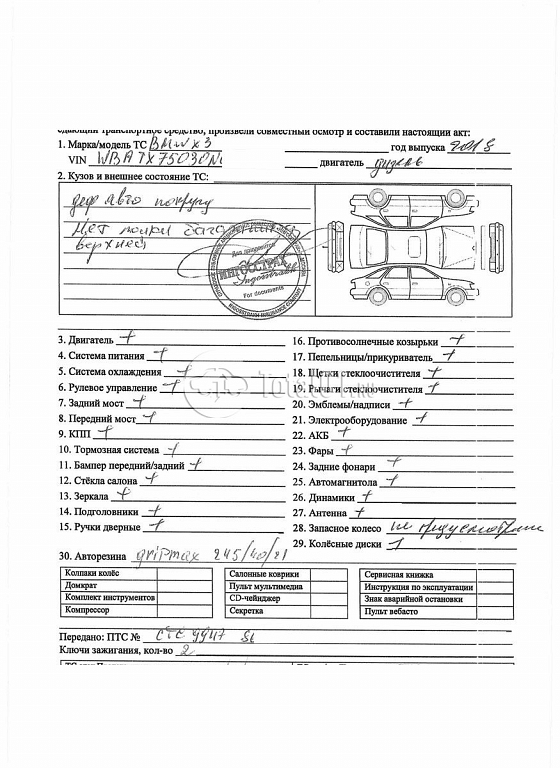 сдающий транспортное средство, произвели совместный осмотр и составили настоящий акт:
1. Марка/модель ТС BMW X3 год выпуска 2018
VIN WBATX75030N двигатель дизель
2. Кузов и внешнее состояние ТС:
деф авто покругу
Нет полки бага
верхней
Для документов
ИНГОССТРАХ
Ingosstrakh
For documents
3. Двигатель +
4. Система питания +
5. Система охлаждения +
6. Рулевое управление +
7. Задний мост +
8. Передний мост +
9. КПП +
10. Тормозная система +
11. Бампер передний/задний +
12. Стёкла салона +
13. Зеркала +
14. Подголовники +
15. Ручки дверные +
16. Противосолнечные козырьки +
17. Пепельницы/прикуриватель +
18. Щетки стеклоочистителя +
19. Рычаги стеклоочистителя +
20. Эмблемы/надписи +
21. Электрооборудование +
22. АКБ +
23. Фары +
24. Задние фонари +
25. Автомагнитола +
26. Динамики +
27. Антенна +
28. Запасное колесо не предусмотрено
29. Колёсные диски +
30. Авторезина gripmax 245/40/21
Колпаки колёс
Домкрат
Комплект инструментов
Компрессор
Салонные коврики
Пульт мультимедиа
CD-чейнджер
Секретка
Сервисная книжка
Инструкция по эксплуатации
Знак аварийной остановки
Пульт вебасто
Передано: ПТС № СТС 9947
Ключи зажигания, кол-во 2